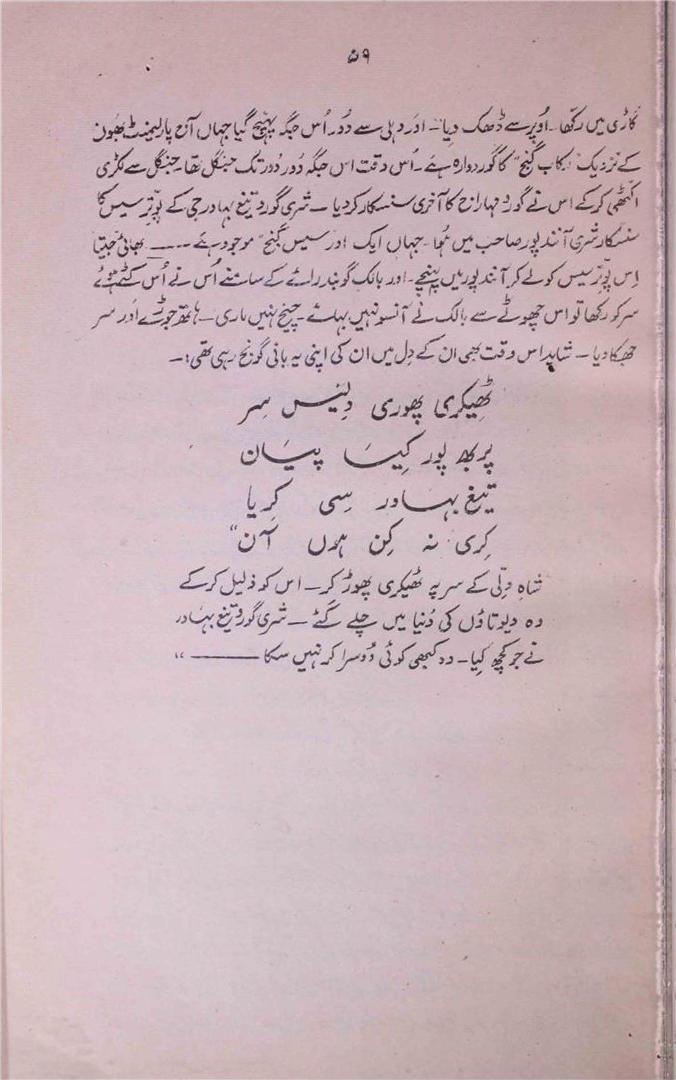 ۵۹
گاڑی میں رکھا۔ اُوپر سے ڈھک دیا۔ اور دہلی سے دُور اُس جگہ پہنچ گیا جہاں آج پارلیمنٹ بھون
کے نزدیک "رکاب گنج" کا گوردوارہ ہے۔ اُس وقت اس جگہ دُور دُور تک جنگل تھا۔ جنگل سے لکڑی
اکٹھی کر کے اس نے گورو مہاراج کا آخری سنسکار کر دیا۔ شری گورو تیغ بہادر جی کے پوِتر سیس کا
سنسکار شری آنند پور صاحب میں ہُوا۔ جہاں ایک اور سیس گنج" موجود ہے ــــ بھائی جیتا
اِس پوِتر سیس کو لے کر آنند پور میں پہنچے۔ اور بالک گوبند رائے کے سامنے اُس نے اُس کٹے ہُوئے
سر کو رکھا تو اس چھوٹے سے بالک نے آنسو نہیں بہائے۔ چیخ نہیں ماری۔ ہاتھ جوڑے اور سر
جھکا دیا۔ شاید اس وقت بھی ان کے دِل میں ان کی اپنی یہ بانی گونج رہی تھی:۔
ٹھِیکری پھوری دِلیس سِر
پربھ پور کِیسَا پیَان
تیغ بہادر سِی کِریا
کِری نہ کِن ہوں آن"
شاہِ دِلّی کے سر پہ ٹھیکری پھوڑ کر۔ اس کو ذلیل کر کے
وہ دیوتاؤں کی دُنیا میں چلے گئے۔ شری گورو تیغ بہادر
نے جو کچھ کِیا۔ وہ کبھی کوئی دُوسرا کر نہیں سکا ــــــــ"